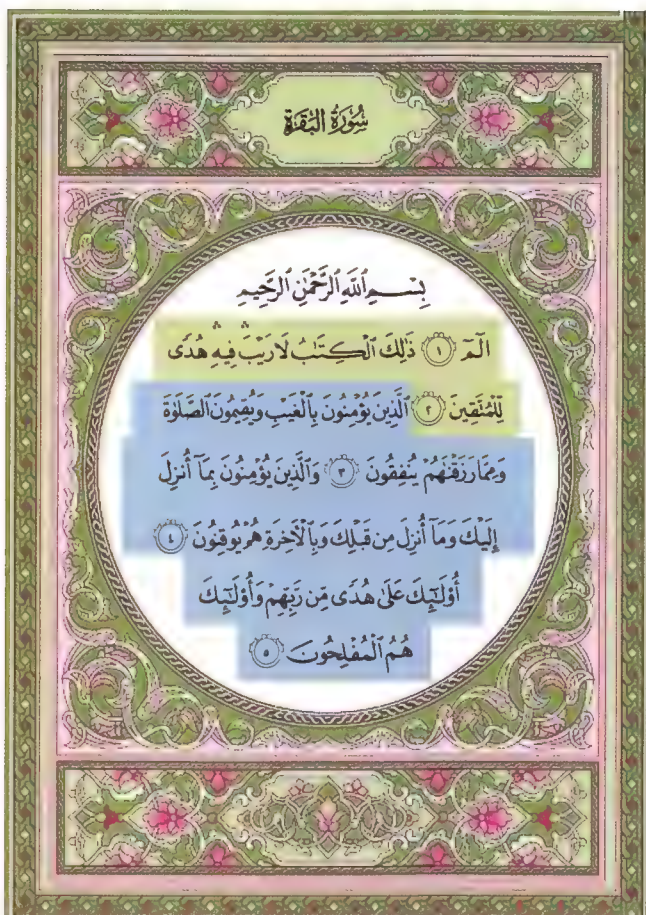 سُورَةُ الْبَقَرَةِ
بِسْمِ ٱللَّهِ ٱلرَّحْمَٰنِ ٱلرَّحِيمِ
الٓمٓ ١ ذَٰلِكَ ٱلْكِتَٰبُ لَا رَيْبَ ۛ فِيهِ ۛ هُدًى
لِّلْمُتَّقِينَ ٢ ٱلَّذِينَ يُؤْمِنُونَ بِٱلْغَيْبِ وَيُقِيمُونَ ٱلصَّلَوٰةَ
وَمِمَّا رَزَقْنَٰهُمْ يُنفِقُونَ ٣ وَٱلَّذِينَ يُؤْمِنُونَ بِمَآ أُنزِلَ
إِلَيْكَ وَمَآ أُنزِلَ مِن قَبْلِكَ وَبِٱلْأَخِرَةِ هُمْ يُوقِنُونَ ٤
أُو۟لَٰٓئِكَ عَلَىٰ هُدًى مِّن رَّبِّهِمْ وَأُو۟لَٰٓئِكَ
هُمُ ٱلْمُفْلِحُونَ ٥